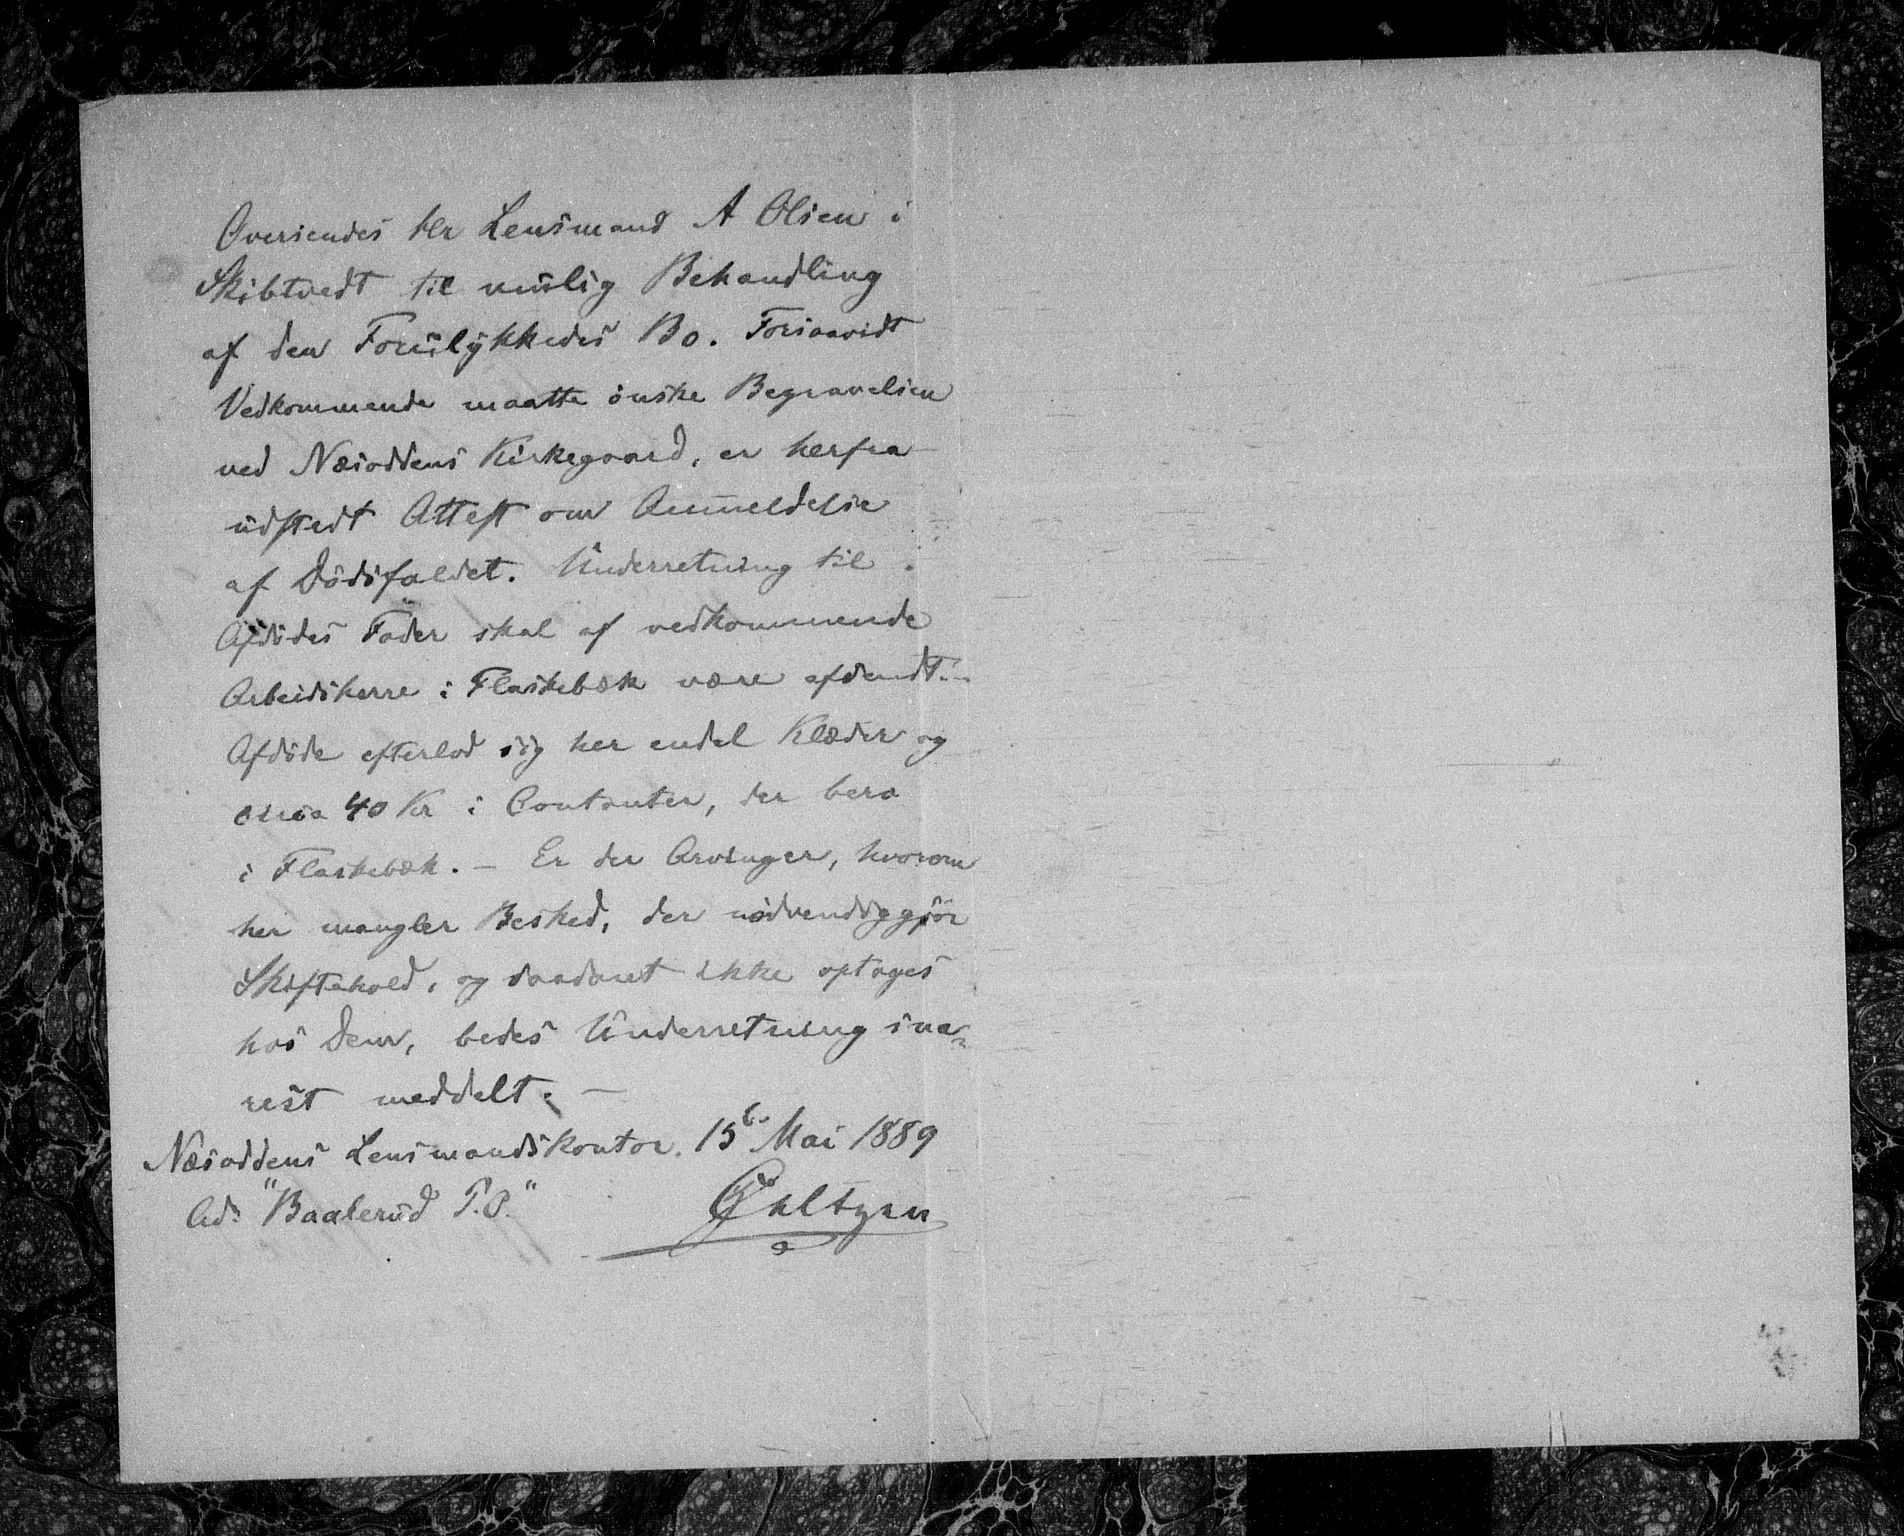 Oversendes Hr Lensmand A Olsen i
Skibtvedt til muilig Behandling
af den Forulykkedes Bo. Forsaavidt
Vedkommende maatte ønske Begravelsen
ved Næsoddens Kirkegaard, er herfra
udstedt Attest om Anmeldelse
af Dødsfaldet. Underretning til
Afdødes Fader skal af vedkommende
Arbeidsherre i Flaskebæk være afsendt. –
Afdøde efterlod sig her endel Klæder og
circa 40 Kr i Contanter, der bero
i Flaskebæk. – Er der Arvinger, hvorom
her mangler Besked, der nødvendiggjør
Skiftehold, og saadant ikke optages
hos Dem, bedes Underretning sna-
rest meddelt. –
Næsoddens Lensmandskontor. 15 Mai 1889
Ads "Baalerud P.O."